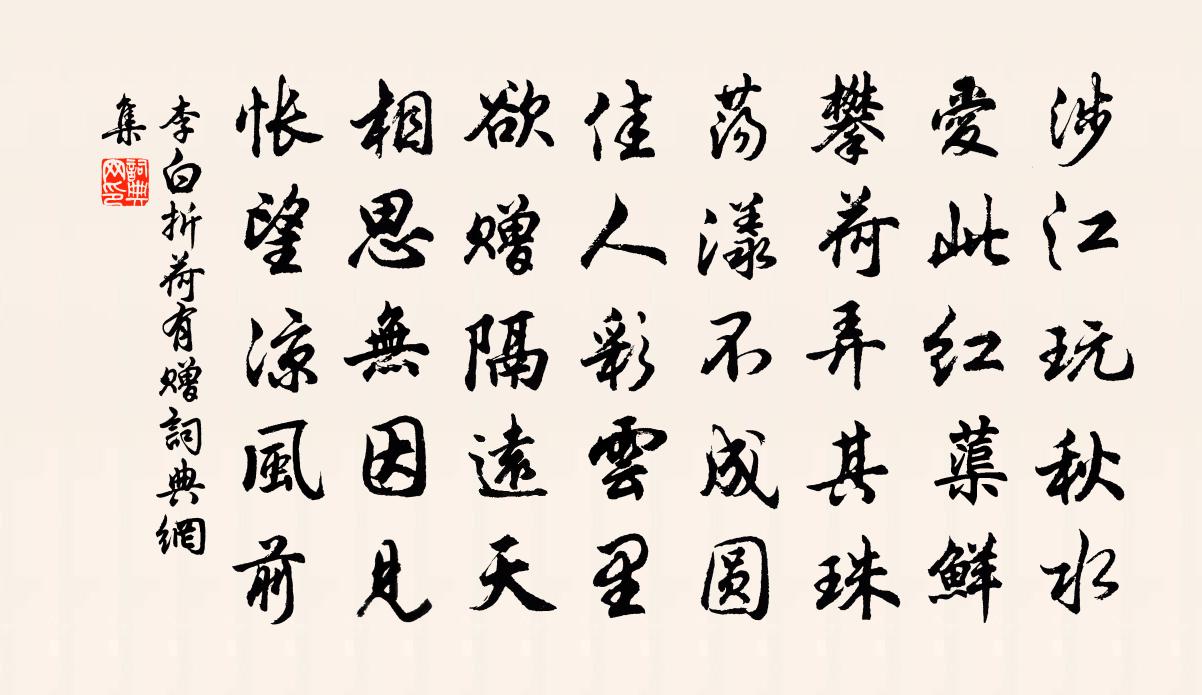 涉江玩秋水
愛此红蕖鮮
攀荷弄其珠
荡漾不成圆
佳人彩雲里
欲赠隔遠天
相思無因見
怅望涼風前
李白折荷有赠詞典網
集
詞典网印